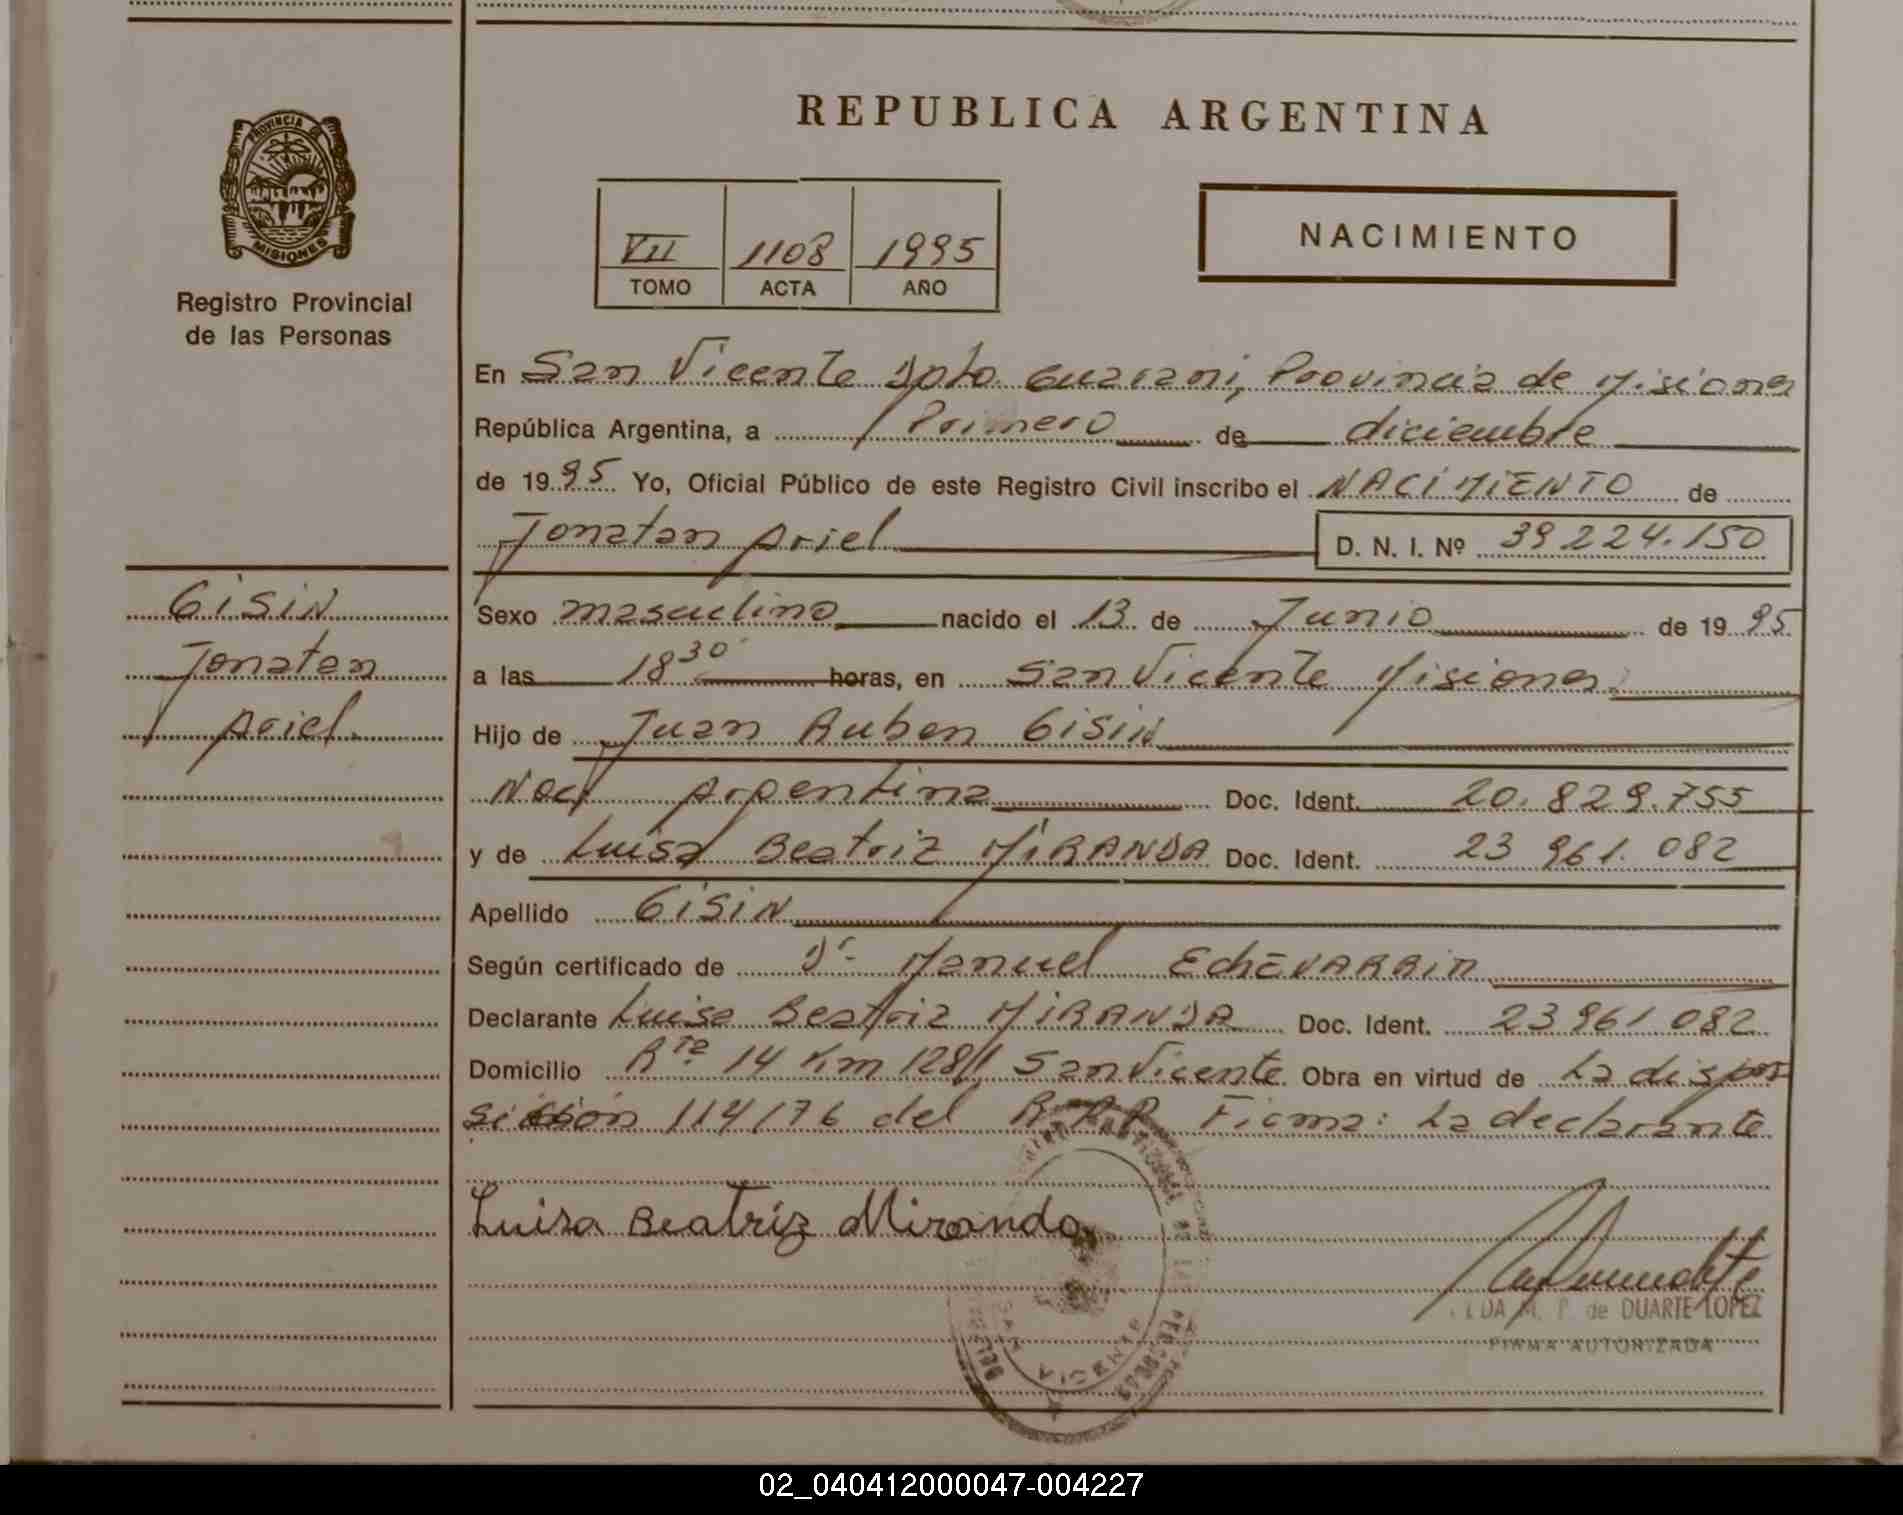 REPUBLICA ARGENTINA
PROVINCIA D
MISIONES
Registro Provincial
de las Personas
VII 1108 1995
TOMO ACTA AÑO
NACIMIENTO
En San Vicente Dpto. Guarani, Provincia de Misiones
República Argentina, a Primero de diciembre
de 1995 Yo, Oficial Público de este Registro Civil inscribo el NACIMIENTO de
Jonatan Ariel D. N. I. Nº 39224.150
GISIN
Jonatan
Ariel.
Sexo masculino nacido el 13 de Junio de 1995
a las 18 30 horas, en San Vicente Misiones.
Hijo de Juan Ruben GISIN
Nac. Argentina Doc. Ident. 20.829.755
y de Luisa Beatriz MIRANDA Doc. Ident. 23 961.082
Apellido GISIN
Según certificado de Dr. Manuel ECHEVARRIA
Declarante Luisa Beatriz MIRANDA Doc. Ident. 23961082
Domicilio Rta 14 Km 1281 San Vicente. Obra en virtud de La dispo
sición 114/76 del R.P.P. Firma: La declarante
Luisa Beatríz Miranda
M. P. de DUARTE LOPEZ
FIRMA AUTORIZADA
02_040412000047-004227